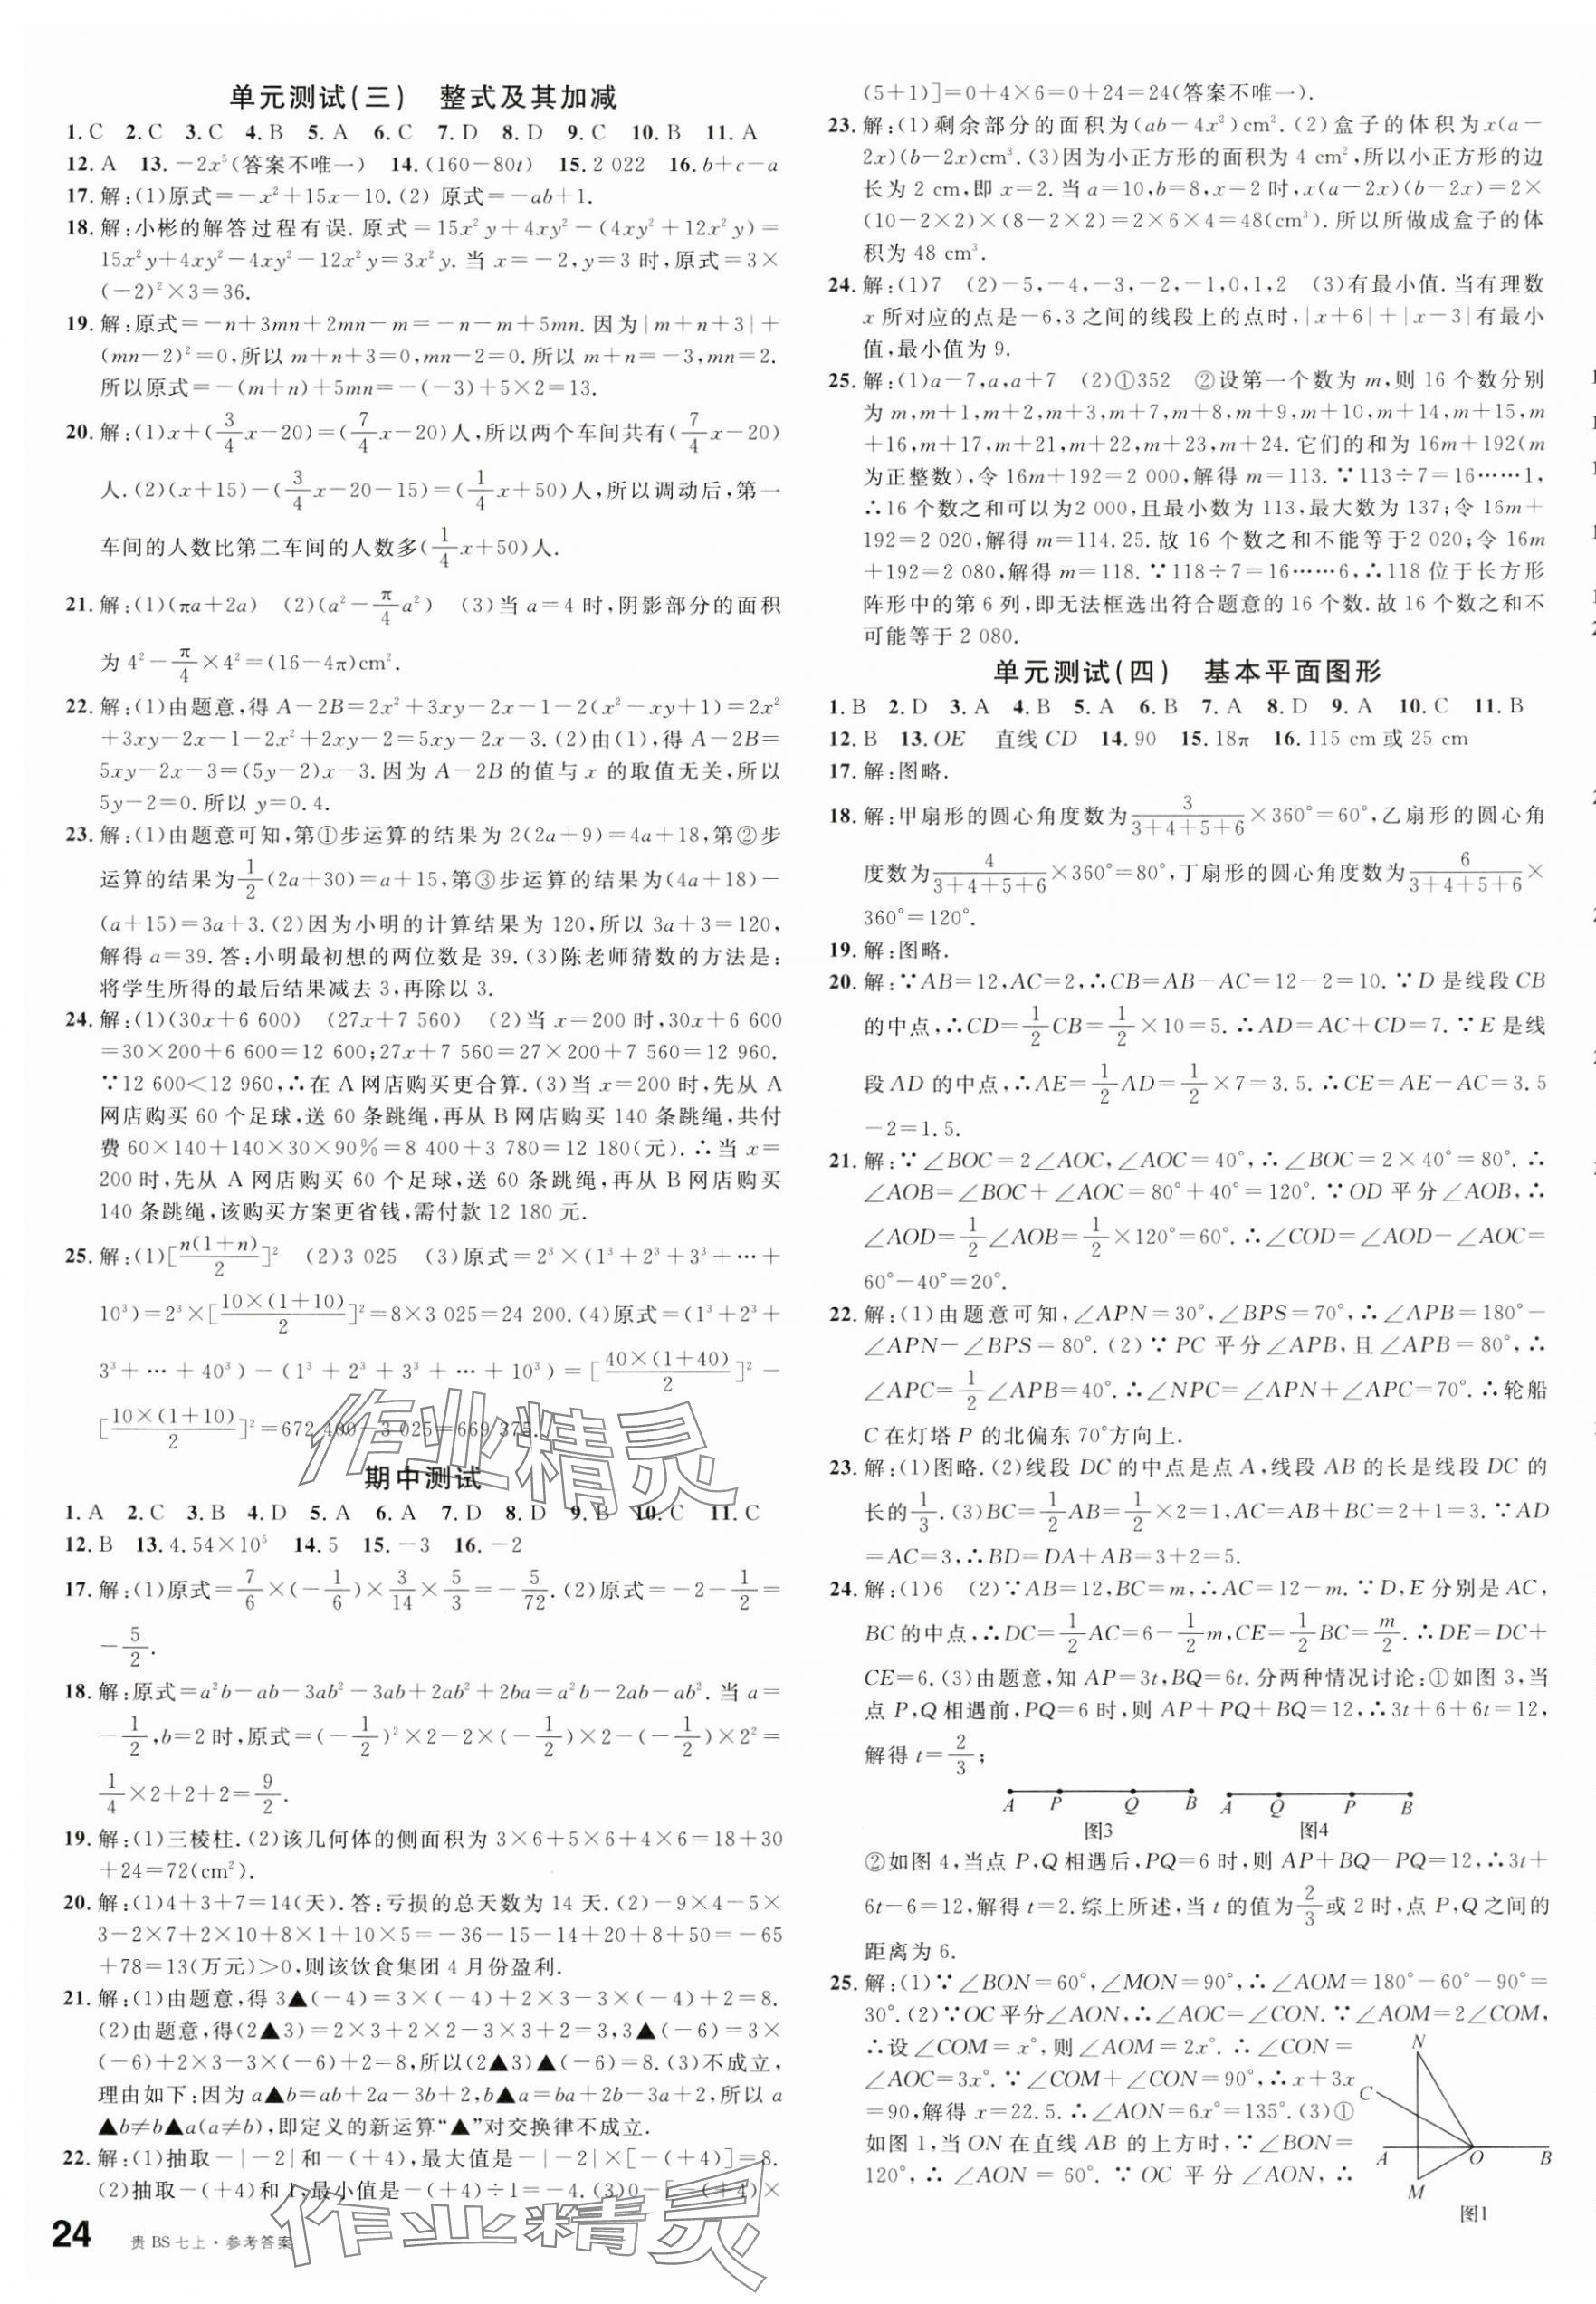 单元测试(三)　整式及其加减
1. C　2. C　3. C　4. B　5. A　6. C　7. D　8. D　9. C　10. B　11. A
12. A　13. －2x⁵(答案不唯一)　14. (160－80t)　15. 2 022　16. b＋c－a
17. 解:(1)原式＝－x²＋15x－10. (2) 原式＝－ab＋1.
18. 解:小彬的解答过程有误. 原式＝15x²y＋4xy²－(4xy²＋12x²y)＝
15x²y＋4xy²－4xy²－12x²y＝3x²y. 当 x＝－2,y＝3 时,原式＝3×
(－2)²×3＝36.
19. 解:原式＝－n＋3mn＋2mn－m＝－n－m＋5mn. 因为|m＋n＋3|＋
(mn－2)²＝0,所以 m＋n＋3＝0,mn－2＝0. 所以 m＋n＝－3,mn＝2.
所以原式＝－(m＋n)＋5mn＝－(－3)＋5×2＝13.
20. 解:(1)x＋(3/4x－20)＝(7/4x－20)人,所以两个车间共有(7/4x－20)
人. (2)(x＋15)－(3/4x－20－15)＝(1/4x＋50)人,所以调动后,第一
车间的人数比第二车间的人数多(1/4x＋50)人.
21. 解:(1)(πa＋2a)　(2)(a²－π/4a²)　(3)当 a＝4 时,阴影部分的面积
为 4²－π/4×4²＝(16－4π)cm².
22. 解:(1)由题意,得 A－2B＝2x²＋3xy－2x－1－2(x²－xy＋1)＝2x²
＋3xy－2x－1－2x²＋2xy－2＝5xy－2x－3. (2)由(1),得 A－2B＝
5xy－2x－3＝(5y－2)x－3. 因为 A－2B 的值与 x 的取值无关,所以
5y－2＝0. 所以 y＝0.4.
23. 解:(1)由题意可知,第①步运算的结果为 2(2a＋9)＝4a＋18,第②步
运算的结果为1/2(2a＋30)＝a＋15,第③步运算的结果为(4a＋18)－
(a＋15)＝3a＋3. (2)因为小明的计算结果为 120,所以 3a＋3＝120,
解得 a＝39. 答:小明最初想的两位数是 39. (3)陈老师猜数的方法是:
将学生所得的最后结果减去 3,再除以 3.
24. 解:(1)(30x＋6 600)　(27x＋7 560)　(2)当 x＝200 时,30x＋6 600
＝30×200＋6 600＝12 600;27x＋7 560＝27×200＋7 560＝12 960.
∵12 600＜12 960,∴在 A 网店购买更合算. (3)当 x＝200 时,先从 A
网店购买 60 个足球,送 60 条跳绳,再从 B 网店购买 140 条跳绳,共付
费 60×140＋140×30×90%＝8 400＋3 780＝12 180(元). ∴当 x＝
200 时,先从 A 网店购买 60 个足球,送 60 条跳绳,再从 B 网店购买
140 条跳绳,该购买方案更省钱,需付款 12 180 元.
25. 解:(1)[n(1＋n)/2]²　(2)3 025　(3)原式＝2³×(1³＋2³＋3³＋…＋
10³)＝2³×[10×(1＋10)/2]²＝8×3 025＝24 200. (4)原式＝(1³＋2³＋
3³＋…＋40³)－(1³＋2³＋3³＋…＋10³)＝[40×(1＋40)/2]²－
[10×(1＋10)/2]²＝672 400－3 025＝669 375.
作业精灵
期中测试
1. A　2. C　3. B　4. D　5. A　6. A　7. D　8. D　9. B　10. C　11. C
12. B　13. 4.54×10⁵　14. 5　15. －3　16. －2
17. 解:(1)原式＝7/6×(－1/6)×3/14×5/3＝－5/72. (2)原式＝－2－1/2＝
－5/2.
18. 解:原式＝a²b－ab－3ab²－3ab＋2ab²＋2ba＝a²b－2ab－ab². 当 a＝
－1/2,b＝2 时,原式＝(－1/2)²×2－2×(－1/2)×2－(－1/2)×2²＝
1/4×2＋2＋2＝9/2.
19. 解:(1)三棱柱. (2)该几何体的侧面积为 3×6＋5×6＋4×6＝18＋30
＋24＝72(cm²).
20. 解:(1)4＋3＋7＝14(天). 答:亏损的总天数为 14 天. (2)－9×4－5×
3－2×7＋2×10＋8×1＋10×5＝－36－15－14＋20＋8＋50＝－65
＋78＝13(万元)＞0,则该饮食集团 4 月份盈利.
21. 解:(1)由题意,得 3▲(－4)＝3×(－4)＋2×3－3×(－4)＋2＝8.
(2)由题意,得(2▲3)＝2×3＋2×2－3×3＋2＝3,3▲(－6)＝3×
(－6)＋2×3－3×(－6)＋2＝8,所以(2▲3)▲(－6)＝8. (3)不成立,
理由如下:因为 a▲b＝ab＋2a－3b＋2,b▲a＝ba＋2b－3a＋2,所以 a
▲b≠b▲a(a≠b),即定义的新运算“▲”对交换律不成立.
22. 解:(1)抽取－|－2|和－(＋4),最大值是－|－2|×[－(＋4)]＝8.
(2)抽取－(＋4)和 1,最小值是－(＋4)÷1＝－4. (3)0－[－(＋4)×
作业精灵
24　贵 BS 七上·参考答案
(5＋1)]＝0＋4×6＝0＋24＝24(答案不唯一).
23. 解:(1)剩余部分的面积为(ab－4x²)cm². (2)盒子的体积为x(a－
2x)(b－2x)cm³. (3)因为小正方形的面积为 4 cm²,所以小正方形的边
长为 2 cm,即 x＝2. 当 a＝10,b＝8,x＝2 时,x(a－2x)(b－2x)＝2×
(10－2×2)×(8－2×2)＝2×6×4＝48(cm³). 所以所做成盒子的体
积为 48 cm³.
24. 解:(1)7　(2)－5,－4,－3,－2,－1,0,1,2　(3)有最小值. 当有理数
x 所对应的点是－6,3 之间的线段上的点时,|x＋6|＋|x－3|有最小
值,最小值为 9.
25. 解:(1)a－7,a,a＋7　(2)①352　②设第一个数为 m,则 16 个数分别
为 m,m＋1,m＋2,m＋3,m＋7,m＋8,m＋9,m＋10,m＋14,m＋15,m
＋16,m＋17,m＋21,m＋22,m＋23,m＋24. 它们的和为 16m＋192(m
为正整数),令 16m＋192＝2 000,解得 m＝113. ∵113÷7＝16……1,
∴16 个数之和可以为2 000,且最小数为 113,最大数为 137;令 16m＋
192＝2 020,解得 m＝114.25. 故 16 个数之和不能等于2 020;令 16m
＋192＝2 080,解得 m＝118. ∵118÷7＝16……6,∴118 位于长方形
阵形中的第 6 列,即无法框选出符合题意的 16 个数. 故 16 个数之和不
可能等于 2 080.
单元测试(四)　基本平面图形
1. B　2. D　3. A　4. B　5. A　6. B　7. A　8. D　9. A　10. C　11. B
12. B　13. OE　直线 CD　14. 90　15. 18π　16. 115 cm 或 25 cm
17. 解:图略.
18. 解:甲扇形的圆心角度数为3/(3＋4＋5＋6)×360°＝60°,乙扇形的圆心角
度数为4/(3＋4＋5＋6)×360°＝80°,丁扇形的圆心角度数为6/(3＋4＋5＋6)×
360°＝120°.
19. 解:图略.
20. 解:∵AB＝12,AC＝2,∴CB＝AB－AC＝12－2＝10. ∵D 是线段 CB
的中点,∴CD＝1/2CB＝1/2×10＝5. ∴AD＝AC＋CD＝7. ∵E 是线
段 AD 的中点,∴AE＝1/2AD＝1/2×7＝3.5. ∴CE＝AE－AC＝3.5
－2＝1.5.
21. 解:∵∠BOC＝2∠AOC,∠AOC＝40°,∴∠BOC＝2×40°＝80°. ∴
∠AOB＝∠BOC＋∠AOC＝80°＋40°＝120°. ∵OD 平分∠AOB,∴
∠AOD＝1/2∠AOB＝1/2×120°＝60°. ∴∠COD＝∠AOD－∠AOC＝
60°－40°＝20°.
22. 解:(1)由题意可知,∠APN＝30°,∠BPS＝70°,∴∠APB＝180°－
∠APN－∠BPS＝80°. (2)∵PC 平分∠APB,且∠APB＝80°,∴
∠APC＝1/2∠APB＝40°. ∴∠NPC＝∠APN＋∠APC＝70°. ∴轮船
C 在灯塔 P 的北偏东 70°方向上.
23. 解:(1)图略. (2)线段 DC 的中点是点 A,线段 AB 的长是线段 DC 的
长的1/3. (3)BC＝1/2AB＝1/2×2＝1,AC＝AB＋BC＝2＋1＝3. ∵AD
＝AC＝3,∴BD＝DA＋AB＝3＋2＝5.
24. 解:(1)6　(2)∵AB＝12,BC＝m,∴AC＝12－m. ∵D,E 分别是 AC,
BC 的中点,∴DC＝1/2AC＝6－1/2m,CE＝1/2BC＝m/2. ∴DE＝DC＋
CE＝6. (3)由题意,知 AP＝3t,BQ＝6t. 分两种情况讨论:①如图 3,当
点 P,Q 相遇前,PQ＝6 时,则 AP＋PQ＋BQ＝12,∴3t＋6＋6t＝12,
解得 t＝2/3;
A　P　Q　B　A　Q　P　B
图3　图4
②如图 4,当点 P,Q 相遇后,PQ＝6 时,则 AP＋BQ－PQ＝12,∴3t＋
6t－6＝12,解得 t＝2. 综上所述,当 t 的值为2/3或 2 时,点 P,Q 之间的
距离为 6.
25. 解:(1)∵∠BON＝60°,∠MON＝90°,∴∠AOM＝180°－60°－90°＝
30°. (2)∵OC 平分∠AON,∴∠AOC＝∠CON. ∵∠AOM＝2∠COM,
∴设∠COM＝x°,则∠AOM＝2x°. ∴∠CON＝
∠AOC＝3x°. ∵∠COM＋∠CON＝90°,∴x＋3x
＝90,解得 x＝22.5. ∴∠AON＝6x°＝135°. (3)①
如图 1,当 ON 在直线 AB 的上方时,∵∠BON＝
120°,∴∠AON＝60°. ∵OC 平分∠AON,∴
N
C
A　O　B
M
图1